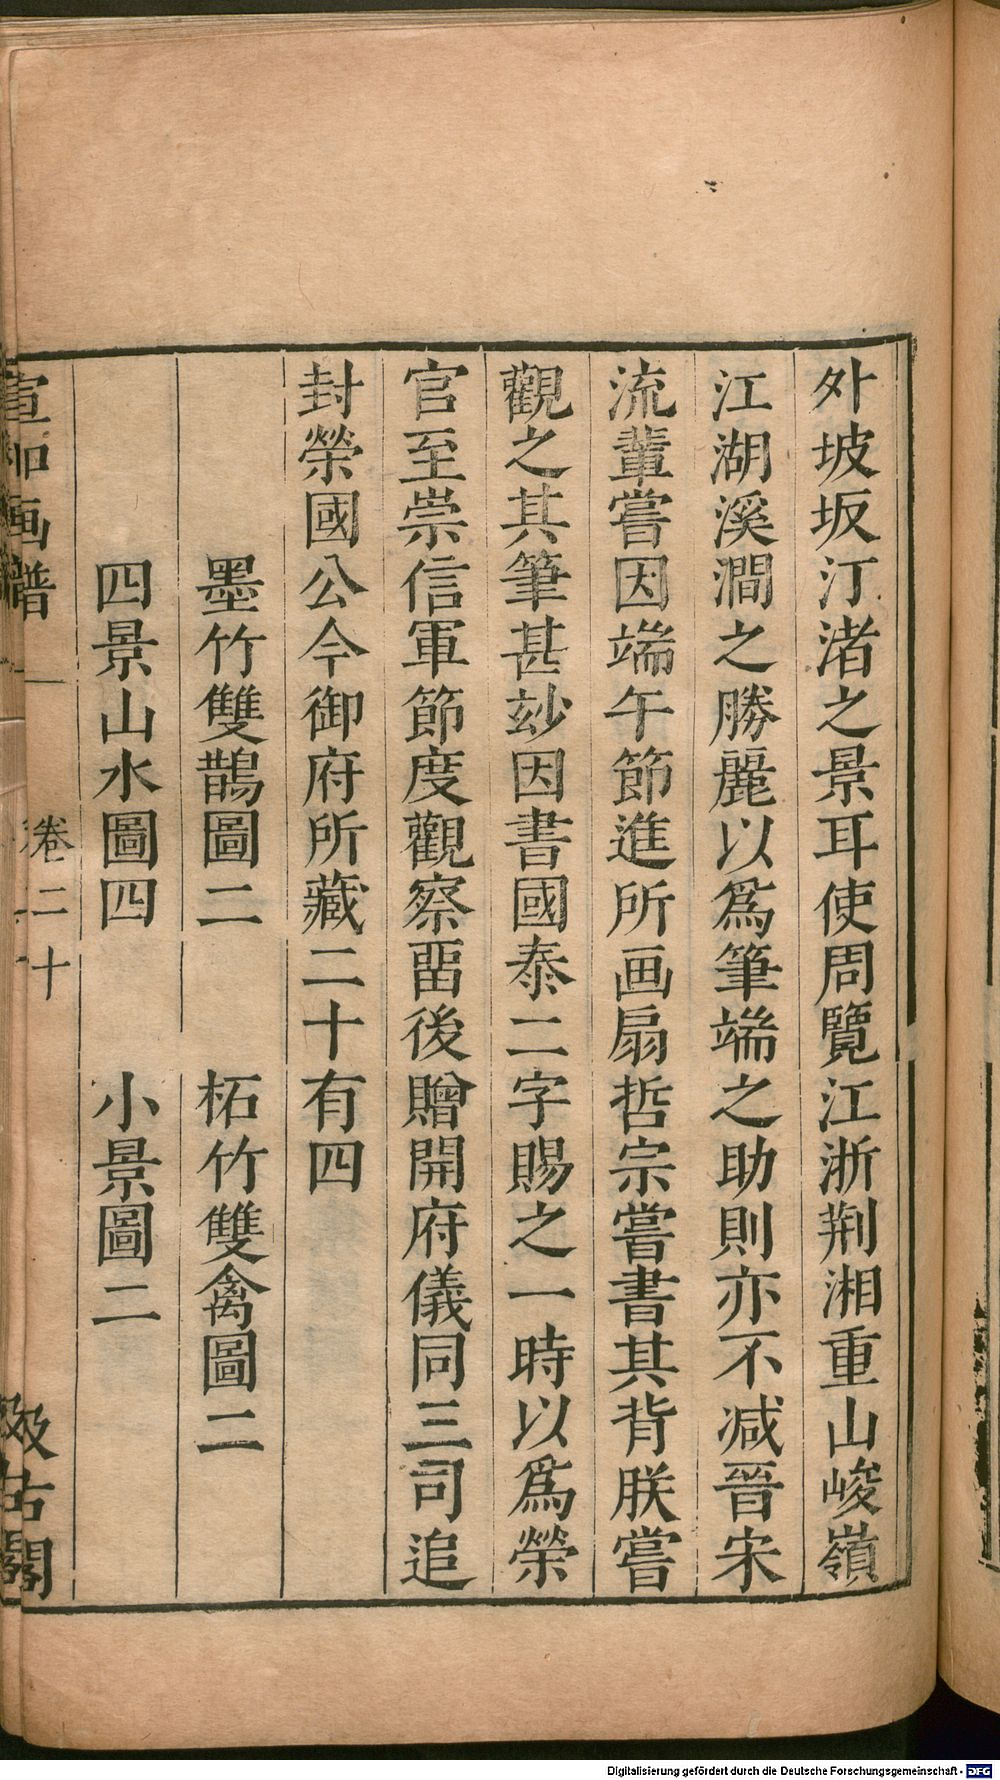 外坡坂汀渚之景耳使周覽江浙荆湘重山峻嶺
江湖溪澗之勝麗以爲筆端之助則亦不减晉宋
流輩嘗因端午節進所画扇哲宗嘗書其背朕嘗
觀之其筆甚玅因書國泰二字賜之一時以爲榮
官至崇信軍節度觀察畱後贈開府儀同三司追
封榮國公今御府所藏二十有四
墨竹雙鵲圖二 柘竹雙禽圖二
四景山水圖四 小景圖二
宣和画譜 卷二十 汲古閣
Digitalisierung gefördert durch die Deutsche Forschungsgemeinschaft - DFG